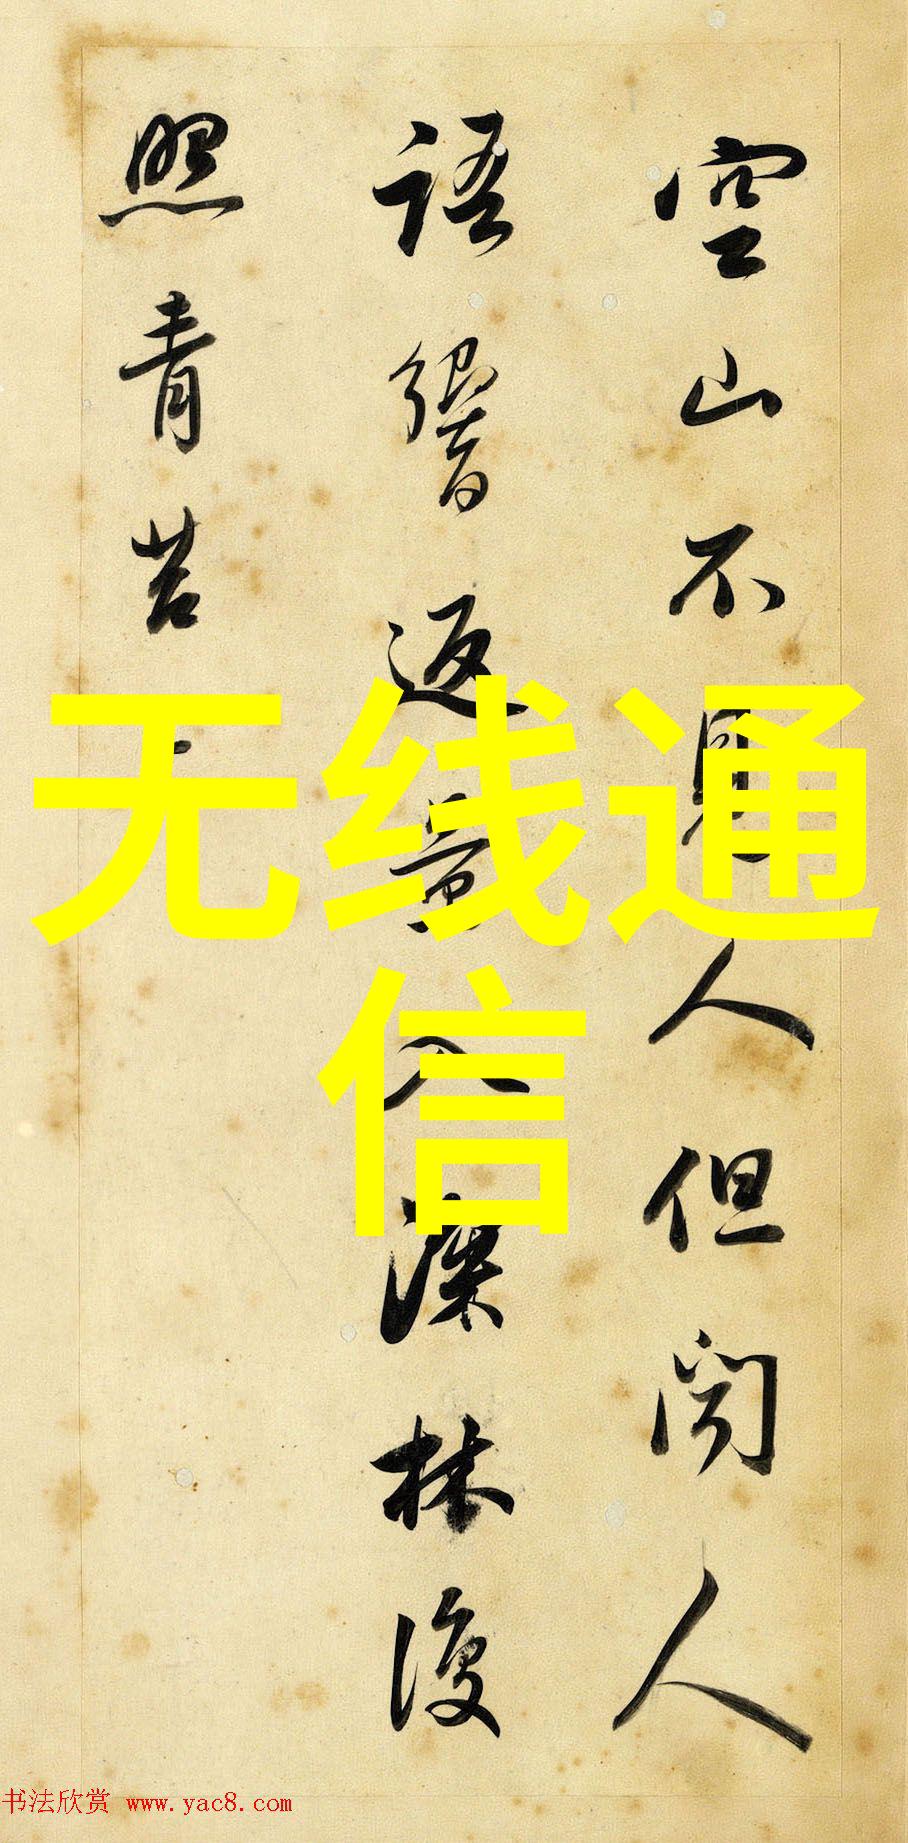 空山不見人但闻人
语響返景入深林復
照青苔
无线通
信
书法欣赏 www.yac8.com